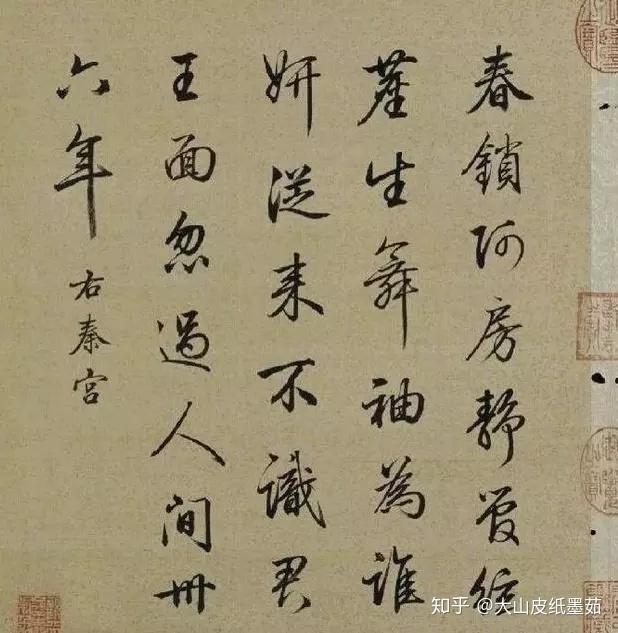 春鎖阿房静管絃
塵生舞袖為誰
妍從来不識君
王面忽過人間卅
六年
右秦宫
知乎 @大山皮纸墨茹